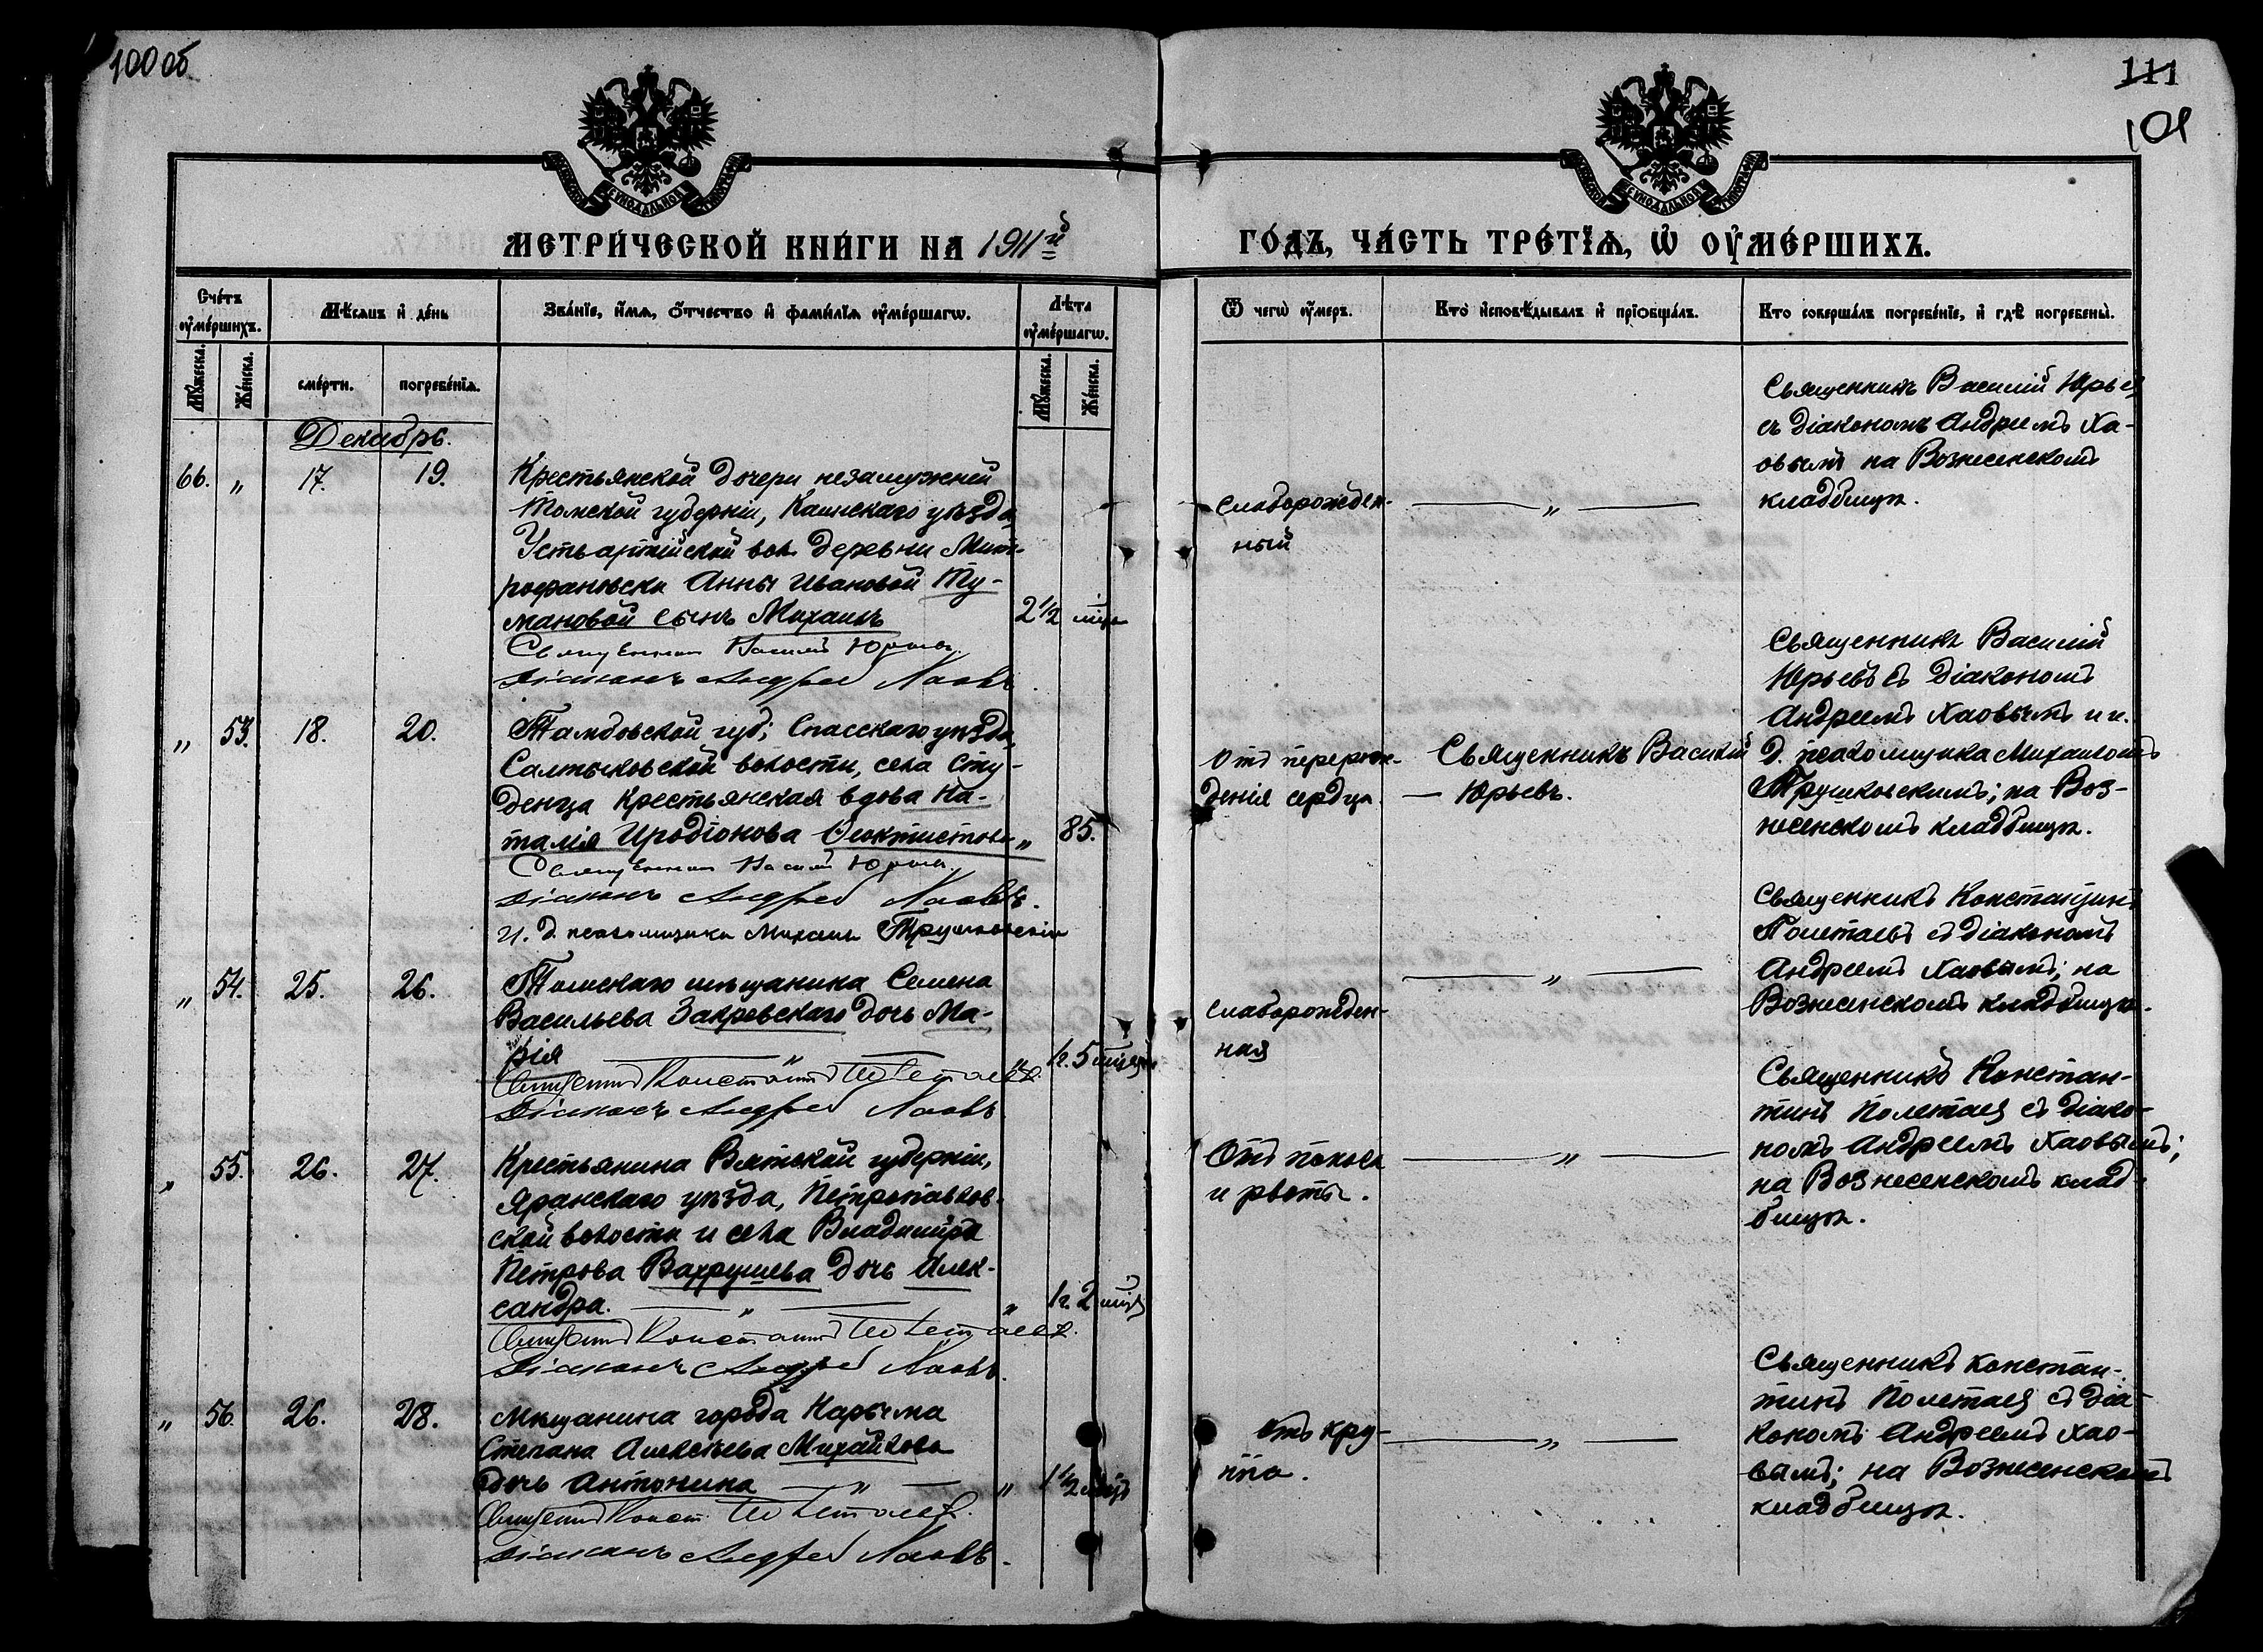 100 об
111
101
СѴНОДАЛЬНОЙ
СѴНОДАЛЬНОЙ
МЕТРИ́ЧЕСКОЙ КНИ́ГИ НА 1911й
ГО́ДЪ, ЧА́СТЬ ТРЕ́ТЇѦ, Ѡ҆ ОУ҆МЕ́РШИХЪ.
Сче́тъ оу҆ме́ршихъ.
Мѣ́сяцъ и҆ де́нь
Зва́нїе, и҆́мя, ѻ҆́тчество и҆ фами́лїя оу҆ме́ршагѡ.
Лѣ́та оу҆ме́ршагѡ.
Ѿ чегѡ̀ оу҆́меръ.
Кто̀ и҆сповѣ́дывалъ и҆ прїѻбща́лъ.
Кто соверша́лъ погребе́нїе, и҆ гдѣ̀ погребены̀.
Мꙋ́жеска.
Же́нска.
сме́рти.
погребе́нїя.
Мꙋ́жеска.
Же́нска.
Декабрь.
66. " 17. 19.
Крестьянской дочери незамужней
Томской губерніи, Каинскаго уѣзда,
Усть-артейской вол. деревни Мит-
рофановски Анны Ивановой Ту-
мановой сынъ Михаилъ
2 1/2 мѣс
Священникъ Василій Юрьевъ.
Діаконъ Андрей Хаовъ.
слаборожден-
ный
— " —
Священникъ Василій Юрьев
съ діакономъ Андреемъ Ха-
овымъ на Вознесенскомъ
кладбищѣ.
" 53. 18. 20.
Тамбовской губ; Спасскаго уѣзда,
Салтыковской волости, села Сту-
денца крестьянская вдова На-
талія Иродіонова Ѳеоктистова " 85.
Священникъ Василій Юрьевъ.
Діаконъ Андрей Хаовъ.
И. д. псаломщика Михаилъ Трушковскій
Отъ перерож-
денія сердца.
Священникъ Василій
— Юрьевъ.
Священникъ Василій
Юрьевъ съ діакономъ
Андреемъ Хаовымъ и и.
д. псаломщика Михаиломъ
Трушковскимъ; на Воз-
несенскомъ кладбищѣ.
" 54. 25. 26.
Томскаго мѣщанина Семена
Васильева Закревскаго дочь Ма-
рія — " — " 1г. 5 мѣсяц
Священникъ Константинъ Полетаевъ.
Діаконъ Андрей Хаовъ.
слаборожден-
ная
— " —
Священникъ Константинъ
Полетаевъ съ діакономъ
Андреемъ Хаовымъ; на
Вознесенскомъ кладбищѣ.
" 55. 26. 27.
Крестьянина Вятской губерніи,
Яранскаго уѣзда, Петропавлов-
ской волости и села Владимира
Петрова Вахрушева дочь Алек-
сандра. — " — " 1г. 2 мѣс
Священникъ Константинъ Полетаевъ.
Діаконъ Андрей Хаовъ.
Отъ поноса
и рвоты.
— " —
Священникъ Констан-
тинъ Полетаев съ діако-
номъ Андреемъ Хаовымъ;
на Вознесенскомъ клад-
бищѣ.
" 56. 26. 28.
Мѣщанина города Нарыма
Степана Алексѣева Михайлова
дочь Антонина — " — " 1 1/2 мѣс
Священникъ Конст. Полетаевъ.
Діаконъ Андрей Хаовъ.
отъ кру-
па.
— " —
Священникъ Констан-
тинъ Полетаев съ діа-
кономъ Андреемъ Хао-
вымъ; на Вознесенскомъ
кладбищѣ.